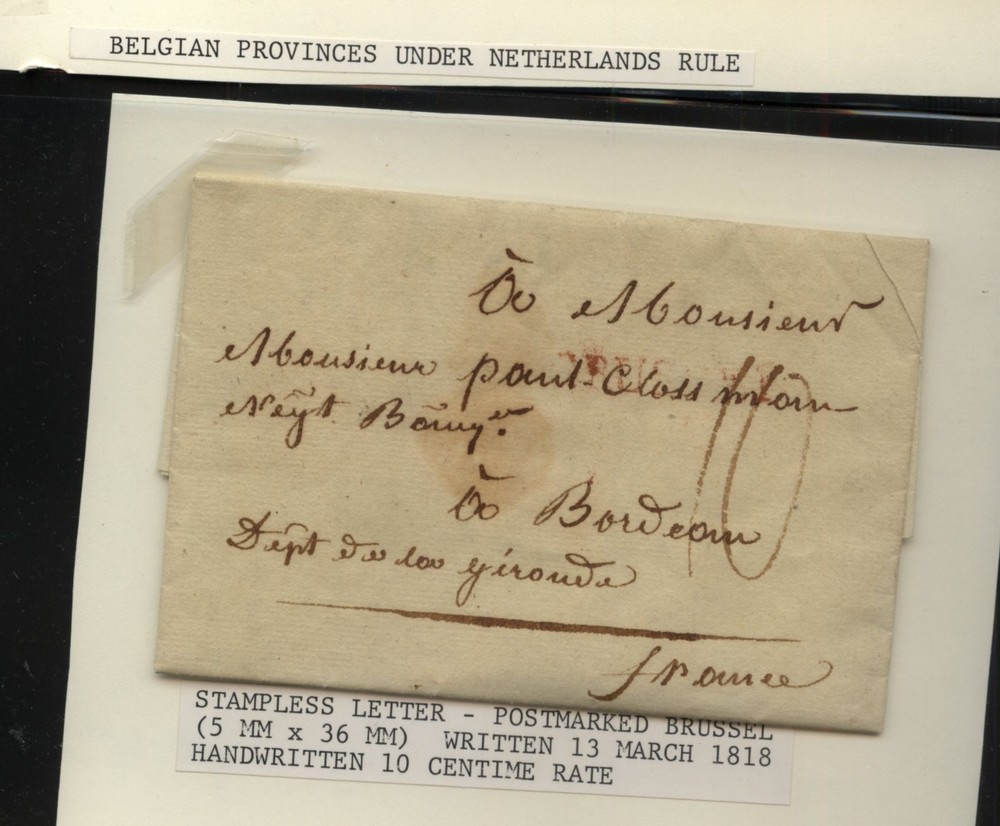 BELGIAN PROVINCES UNDER NETHERLANDS RULE
à Monsieur
Monsieur paul Clossmän
Neÿt
10
à Bordeau
Dept de la gironde
france
STAMPLESS LETTER - POSTMARKED BRUSSEL
(5 MM x 36 MM) WRITTEN 13 MARCH 1818
HANDWRITTEN 10 CENTIME RATE